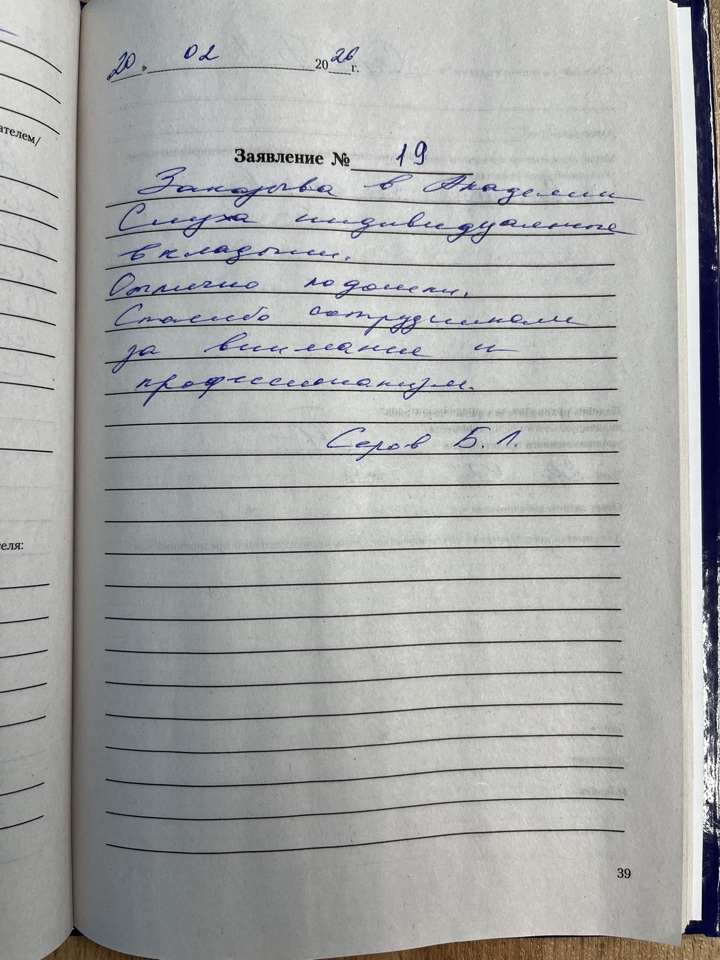 20 » 02 2026 г.
ателем/
Заявление № 19
Заказыва в Академии
Слуха индивидуальные
вкладыши.
Отлично подошли.
Спасибо сотрудникам
за внимание и
профессионализм.
Серов Б. Л.
теля:
39